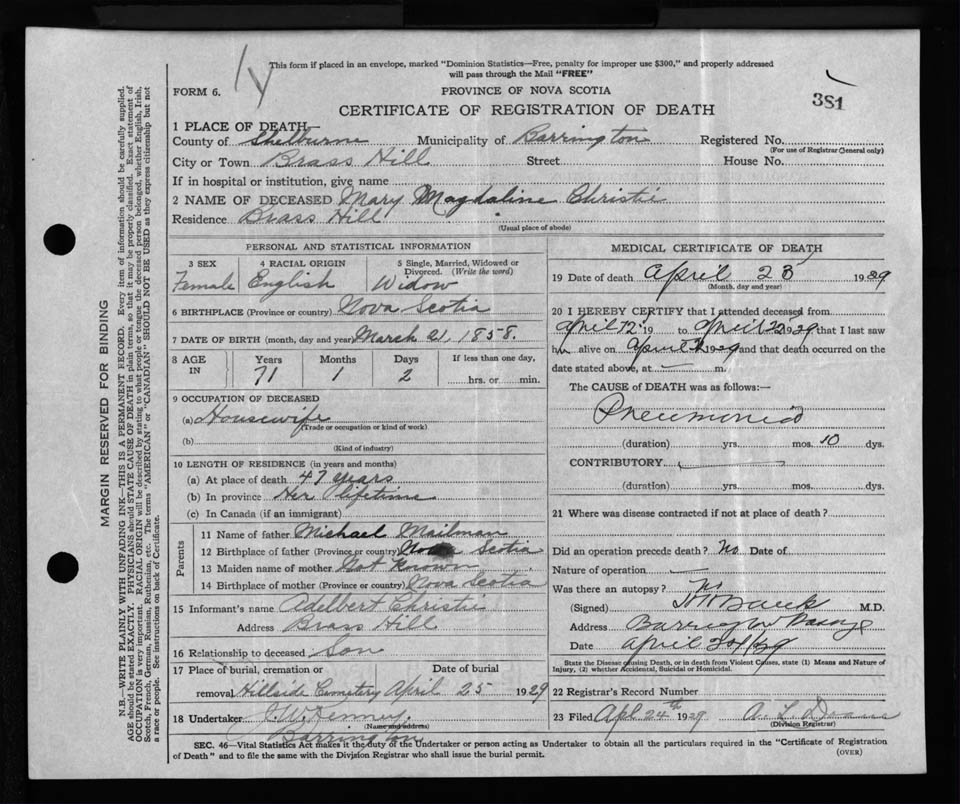 This form if placed in an envelope, marked "Dominion Statistics—Free, penalty for improper use $300," and properly addressed
will pass through the Mail "FREE"
FORM 6.
PROVINCE OF NOVA SCOTIA
381
CERTIFICATE OF REGISTRATION OF DEATH
1 PLACE OF DEATH
County of Shelburne Municipality of Barrington Registered No.
(For use of Registrar General only)
City or Town Brass Hill Street House No.
If in hospital or institution, give name
2 NAME OF DECEASED Mary Magdaline Christie
Residence Brass Hill
(Usual place of abode)
PERSONAL AND STATISTICAL INFORMATION
3 SEX
Female
4 RACIAL ORIGIN
English
5 Single, Married, Widowed or
Divorced. (Write the word)
Widow
6 BIRTHPLACE (Province or country) Nova Scotia
7 DATE OF BIRTH (month, day and year) March 21, 1858.
8 AGE
IN
Years Months Days
71 1 2
If less than one day,
hrs. or min.
9 OCCUPATION OF DECEASED
(a) Housewife
(Trade or occupation or kind of work)
(b)
(Kind of industry)
10 LENGTH OF RESIDENCE (in years and months)
(a) At place of death 47 years
(b) In province Her lifetime
(c) In Canada (if an immigrant)
Parents
11 Name of father Michael Mailman
12 Birthplace of father (Province or country) Nova Scotia
13 Maiden name of mother Not Known
14 Birthplace of mother (Province or country) Nova Scotia
15 Informant's name Adelbert Christie
Address Brass Hill
16 Relationship to deceased Son
17 Place of burial, cremation or Date of burial
removal Hillside Cemetery April 25 1929
18 Undertaker J. W. Kenney.
(Name and address)
Barrington
MEDICAL CERTIFICATE OF DEATH
19 Date of death April 23 1929
(Month, day and year)
20 I HEREBY CERTIFY that I attended deceased from
April 12 19 to April 1929 that I last saw
her alive on April 1929 and that death occurred on the
date stated above, at — m.
The CAUSE of DEATH was as follows:—
Pneumonia
(duration) yrs. mos. 10 dys.
CONTRIBUTORY
(duration) yrs. mos. dys.
21 Where was disease contracted if not at place of death?
Did an operation precede death? No Date of
Nature of operation —
Was there an autopsy? No
(Signed) M.D.
Address Barrington Passage
Date April
State the Disease causing Death, or in death from Violent Causes, state (1) Means and Nature of
Injury, (2) whether Accidental, Suicidal or Homicidal.
22 Registrar's Record Number
23 Filed Apl 24th 1929 A. L.
(Division Registrar)
SEC. 46—Vital Statistics Act makes it the duty of the Undertaker or person acting as Undertaker to obtain all the particulars required in the "Certificate of Registration
of Death" and to file the same with the Division Registrar who shall issue the burial permit.
(OVER)
MARGIN RESERVED FOR BINDING
N.B.—WRITE PLAINLY WITH UNFADING INK—THIS IS A PERMANENT RECORD. Every item of information should be carefully supplied.
AGE should be stated EXACTLY. PHYSICIANS should STATE CAUSE OF DEATH in plain terms, so that it may be properly classified. Exact statement of
OCCUPATION is very important. RACIAL ORIGIN will be described by stating to what people or tongue the deceased person belonged, whether English, Irish,
Scotch, French, German, Russian, Ruthenian, etc. The terms "AMERICAN" or "CANADIAN" SHOULD NOT BE USED as they express citizenship but not
a race or people. See instructions on back of Certificate.